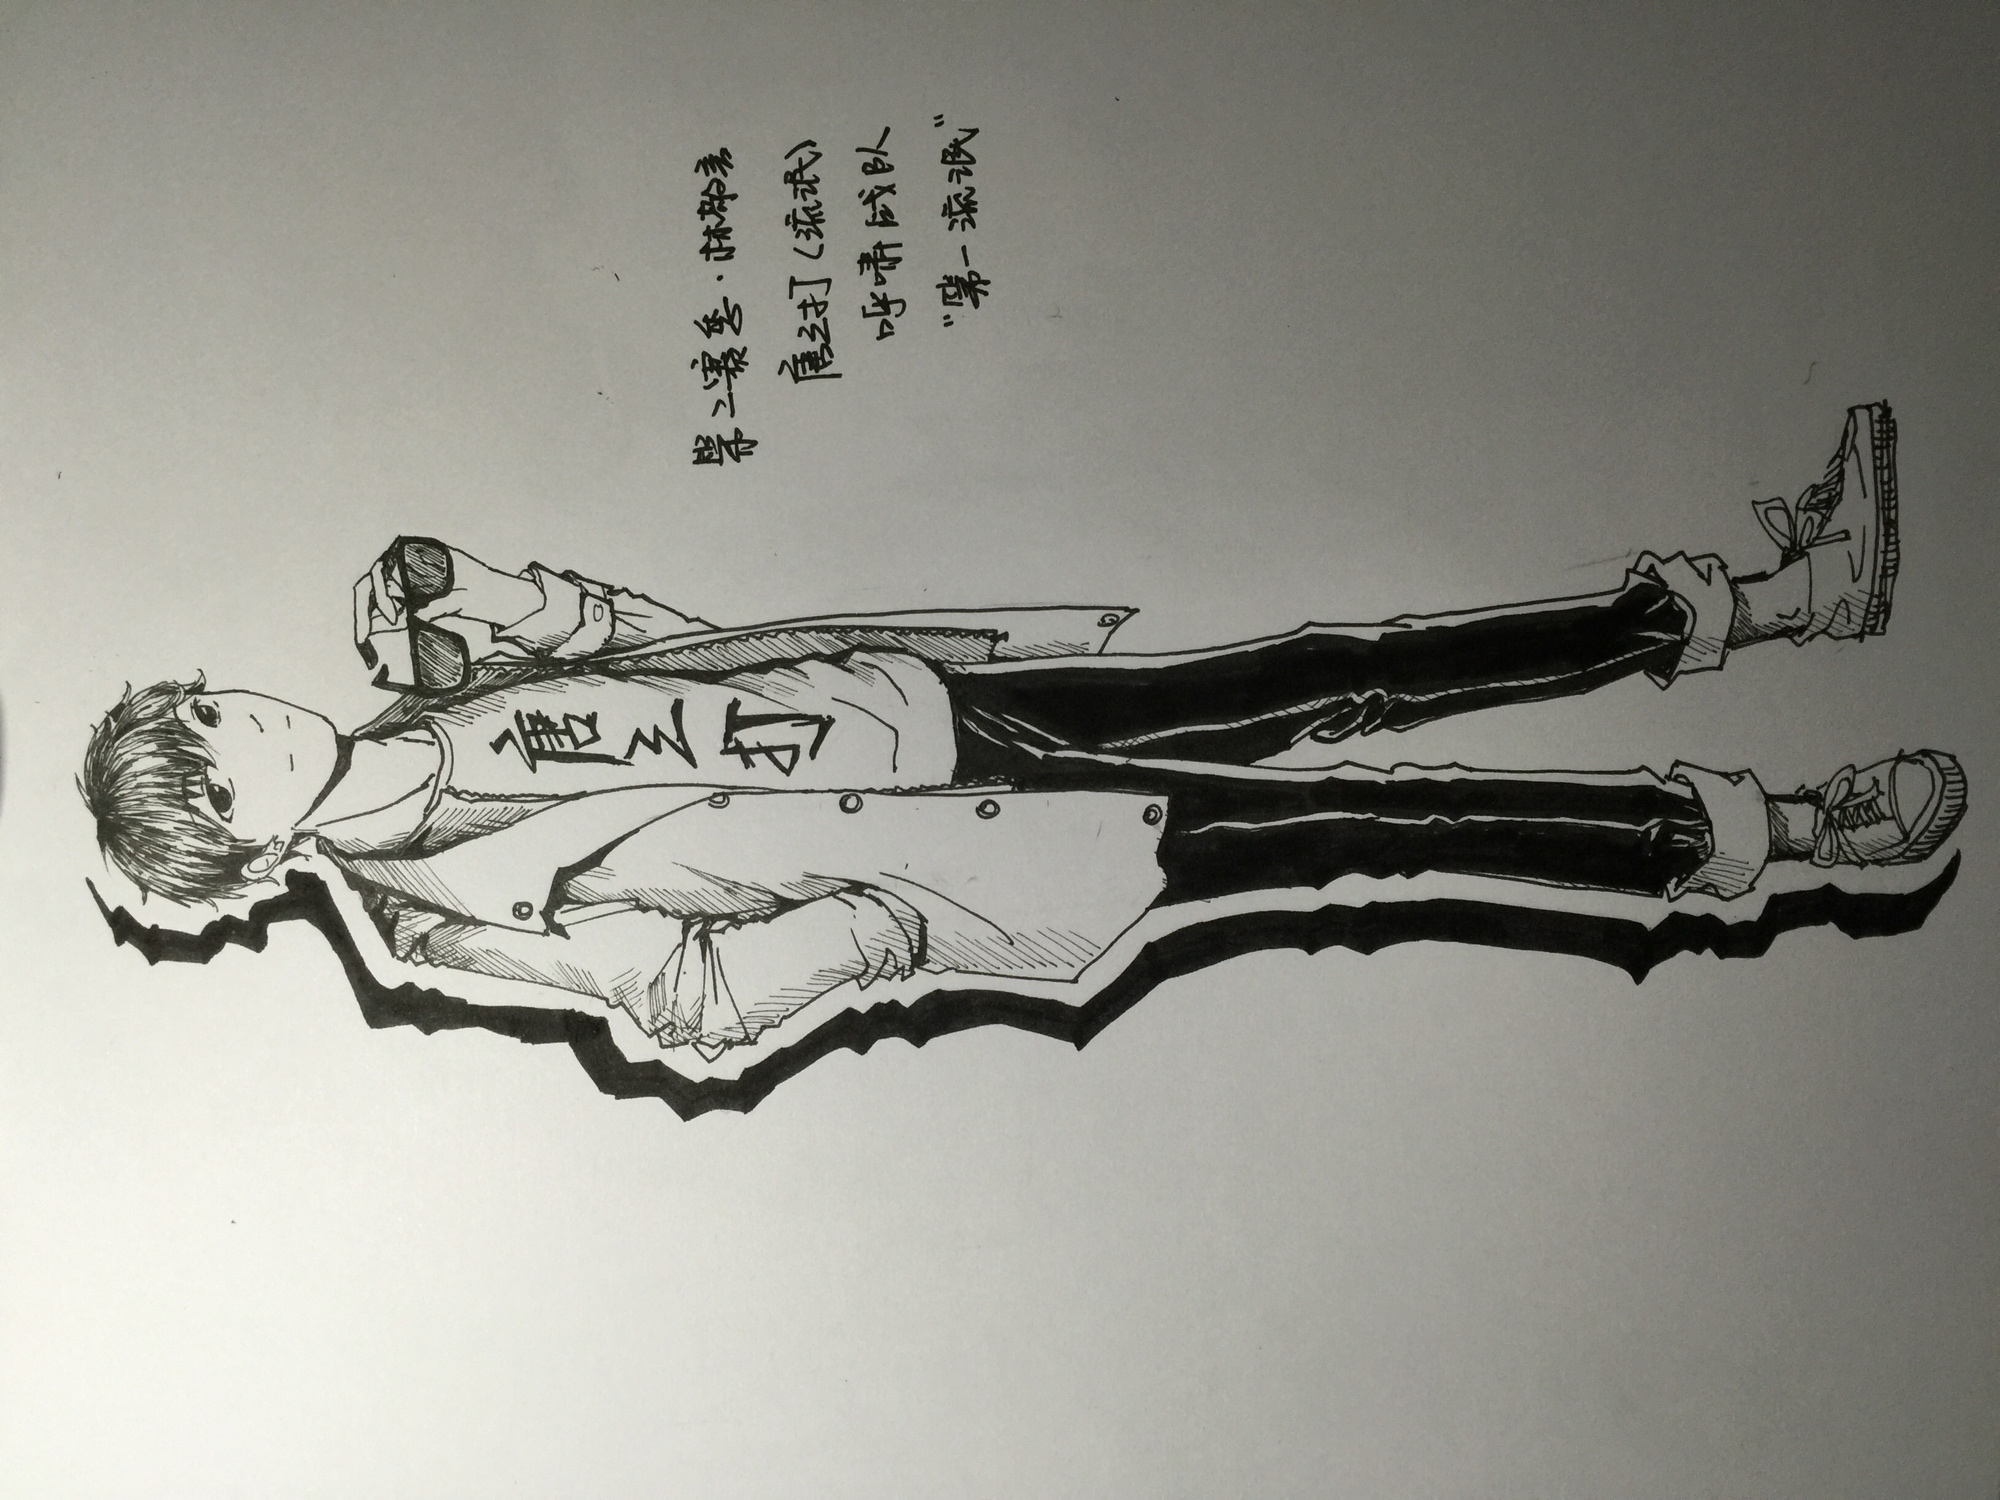 唐三打
第二赛季·林敬言
唐三打（流氓）
呼啸战队
“第一流氓”